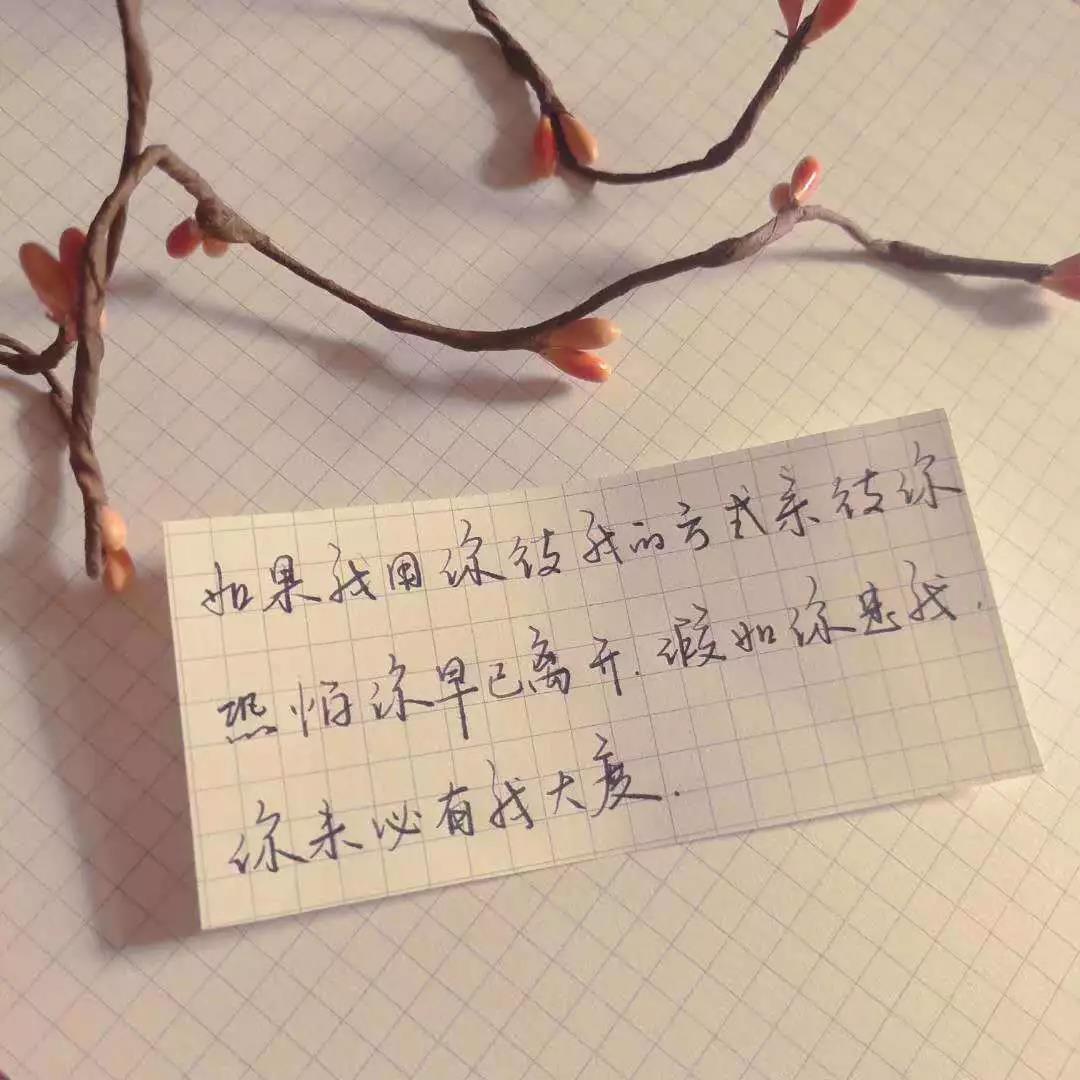 如果我用你待我的方式来待你
恐怕你早已离开.假如你是我.
你未必有我大度.